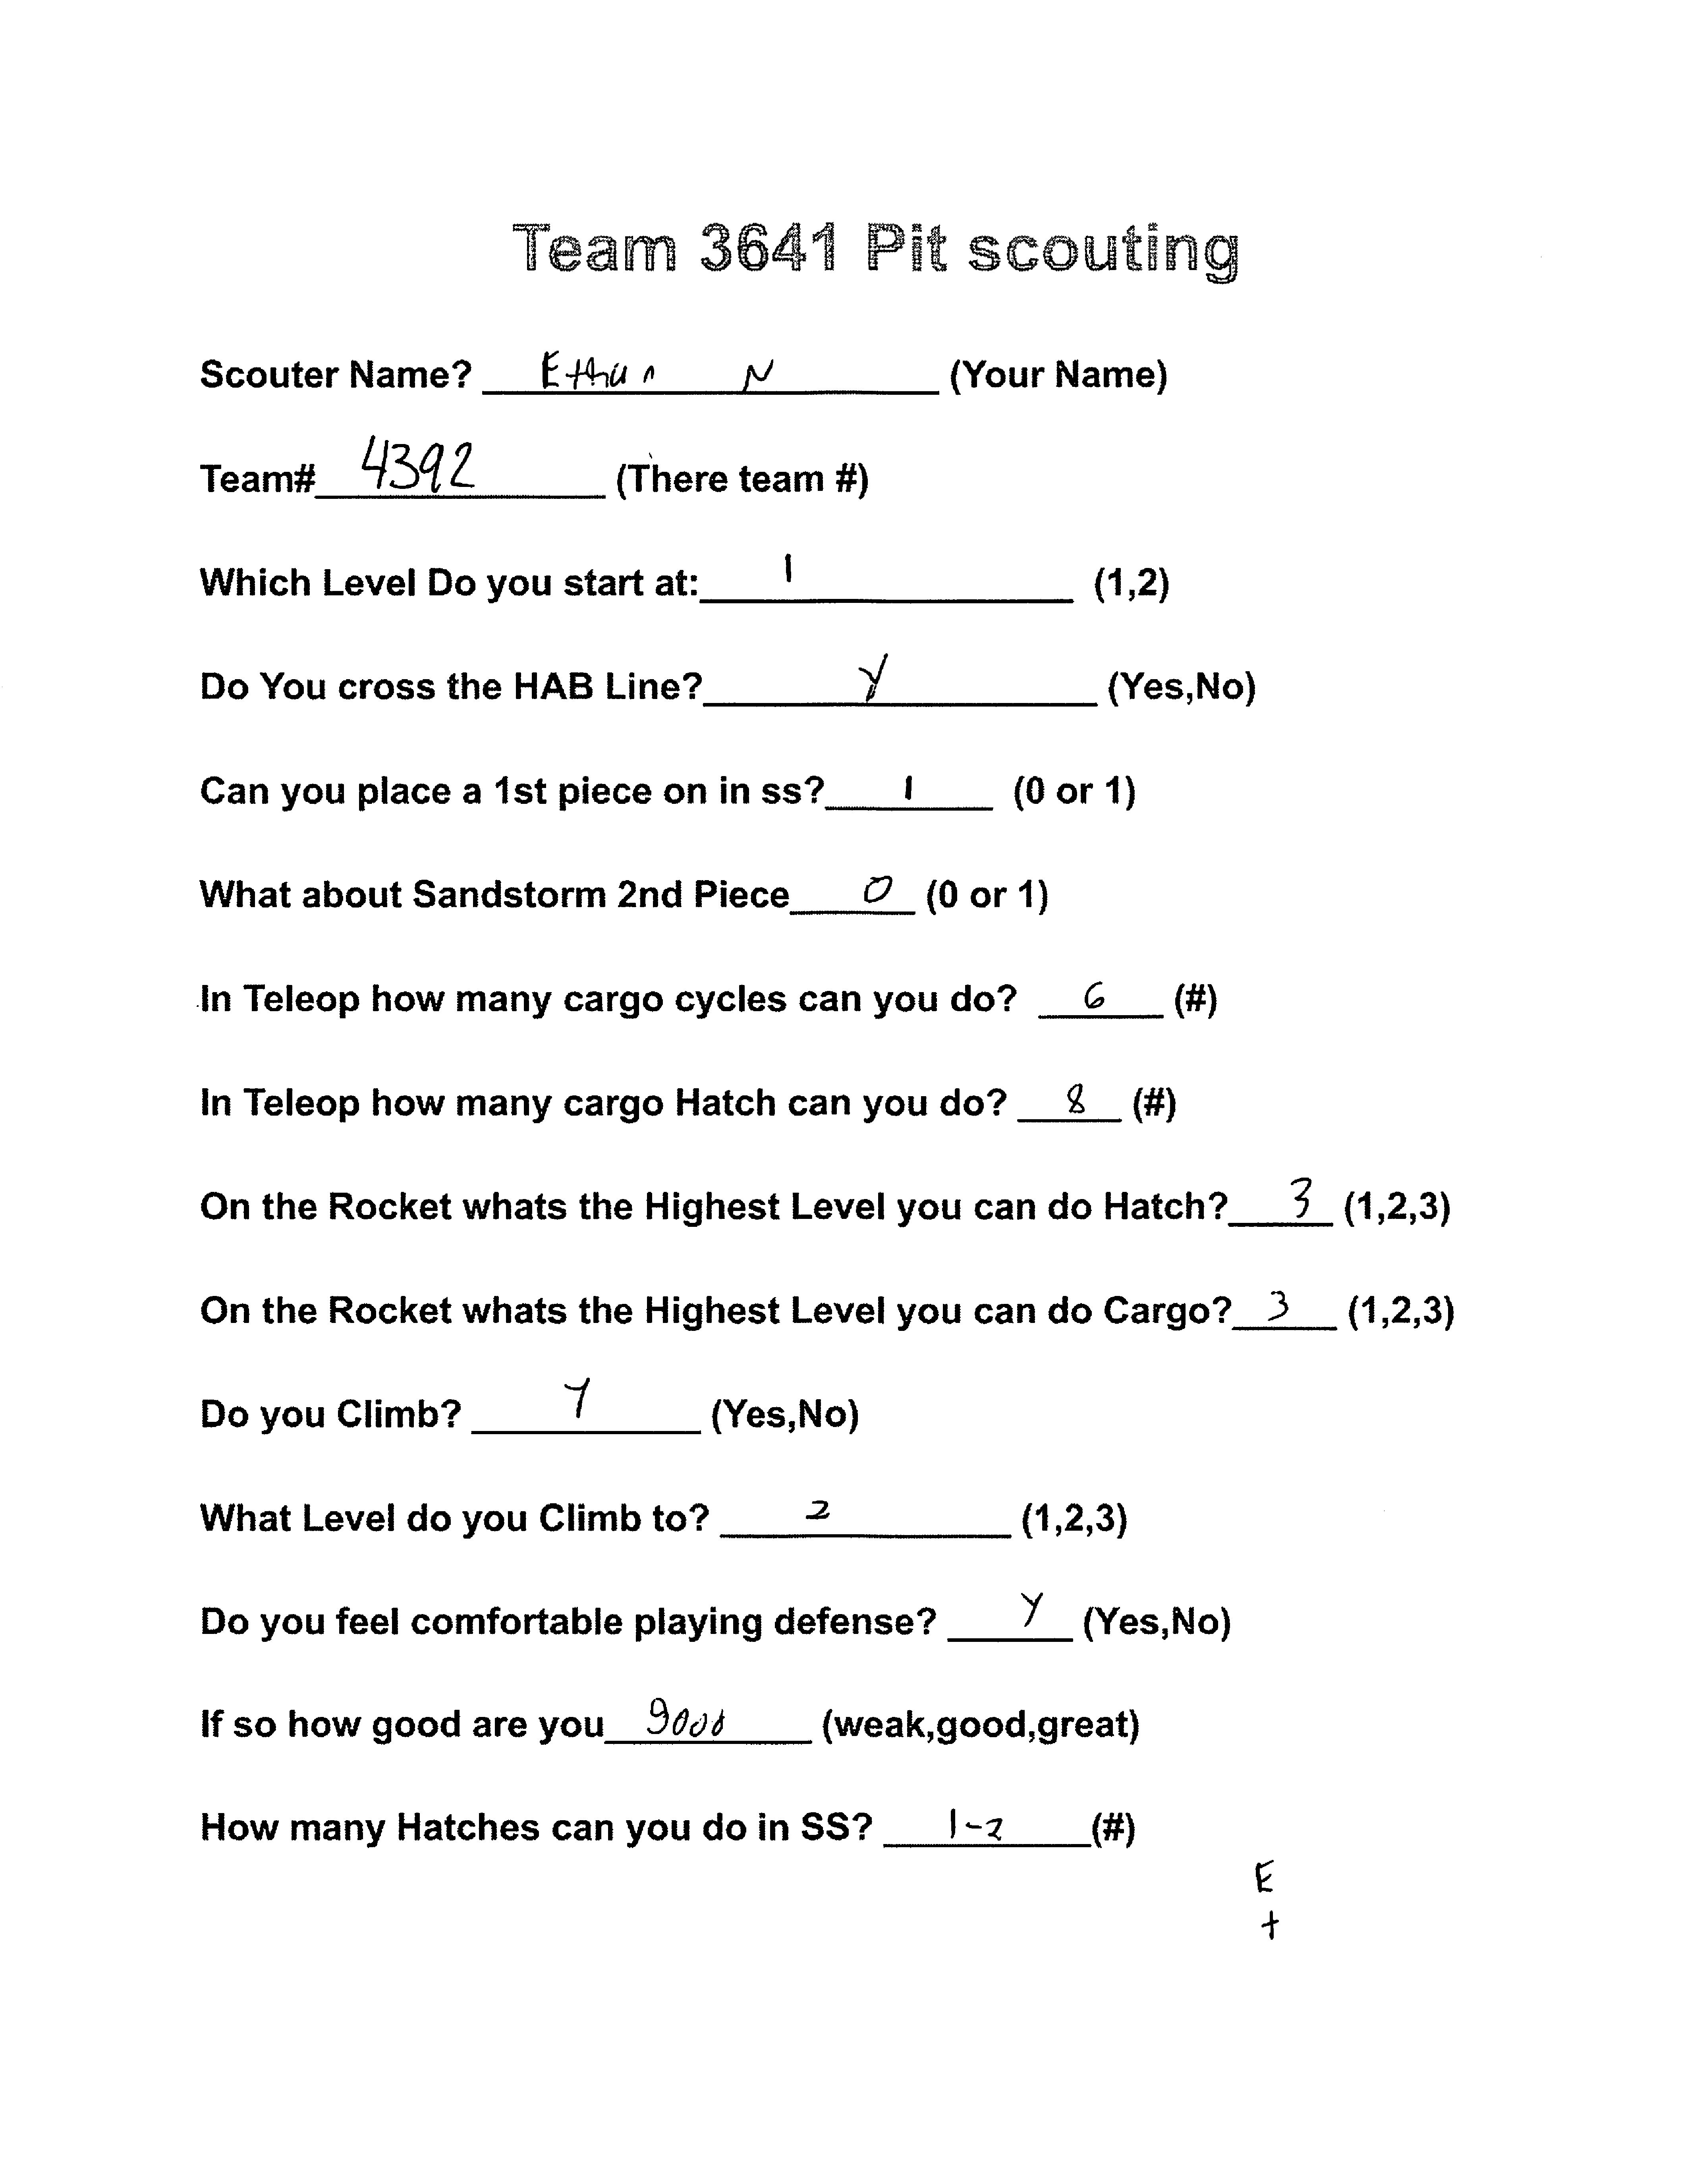 Team 3641 Pit scouting
Scouter Name? Ethan N (Your Name)
Team# 4392 (There team #)
Which Level Do you start at: 1 (1,2)
Do You cross the HAB Line? Y (Yes,No)
Can you place a 1st piece on in ss? 1 (0 or 1)
What about Sandstorm 2nd Piece 0 (0 or 1)
In Teleop how many cargo cycles can you do? 6 (#)
In Teleop how many cargo Hatch can you do? 8 (#)
On the Rocket whats the Highest Level you can do Hatch? 3 (1,2,3)
On the Rocket whats the Highest Level you can do Cargo? 3 (1,2,3)
Do you Climb? Y (Yes,No)
What Level do you Climb to? 2 (1,2,3)
Do you feel comfortable playing defense? Y (Yes,No)
If so how good are you good (weak,good,great)
How many Hatches can you do in SS? 1-2 (#)
E
t